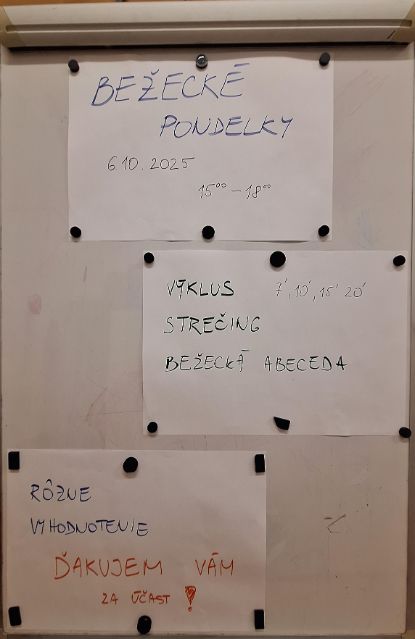 BEŽECKÉ
PONDELKY
6.10.2025
15⁰⁰ - 18⁰⁰
VÝKLUS 7', 10', 15' 20'
STREČING
BEŽECKÁ ABECEDA
RÔZNE
VYHODNOTENIE
ĎAKUJEM VÁM
ZA ÚČASŤ !